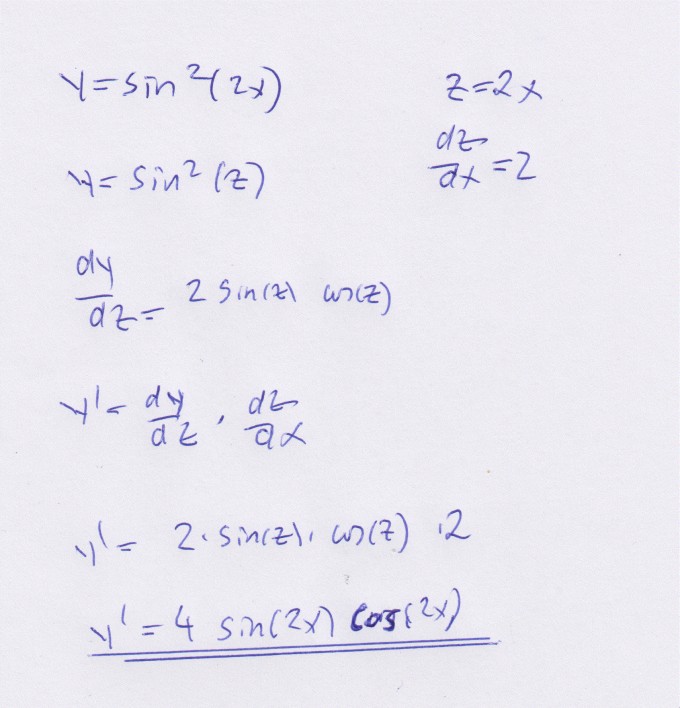 y = sin²(2x)
z = 2x
dz/dx = 2
y = sin²(z)
dy/dz = 2 sin(z) cos(z)
y' = dy/dz · dz/dx
y' = 2 · sin(z) · cos(z) · 2
y' = 4 sin(2x) cos(2x)